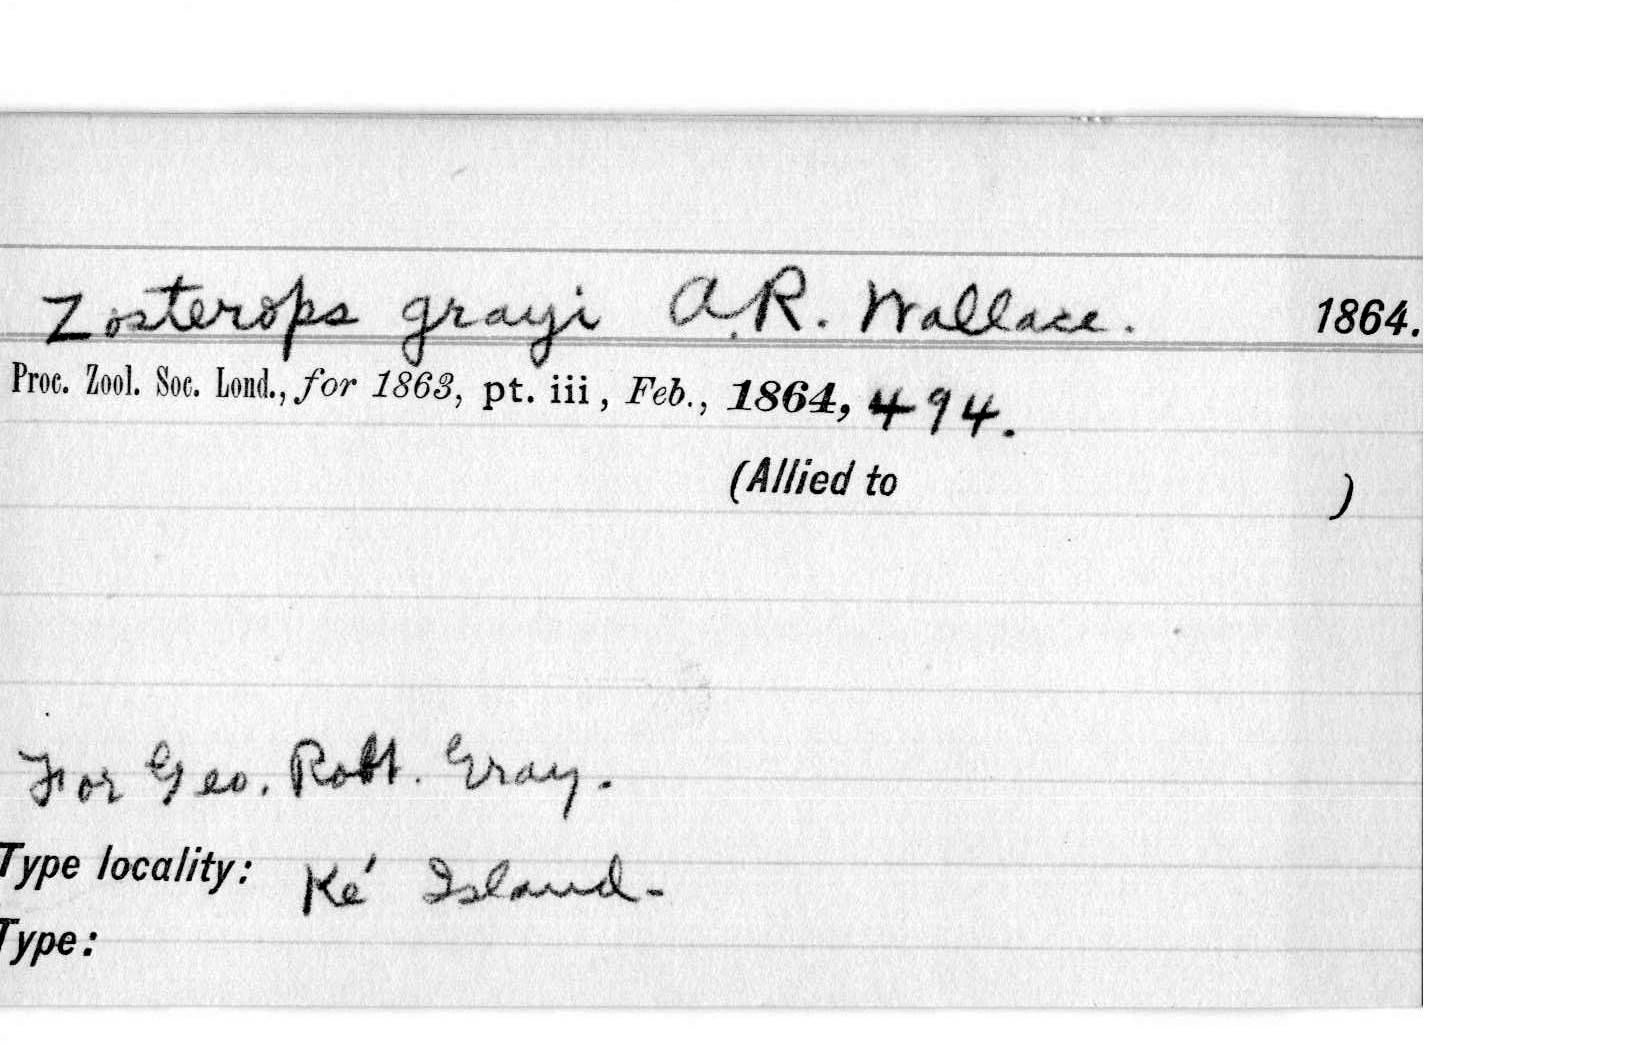 Zosterops grayi A.R. Wallace. 1864.
Proc. Zool. Soc. Lond., for 1863, pt. iii, Feb., 1864, 494.
(Allied to )
For Geo. Robt. Gray.
Type locality: Ké Island-
Type: